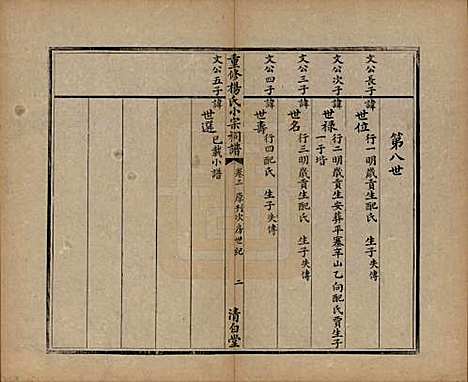 第八世
文公長子諱
世位
行一明歲貢生配氏 生子失傳
文公次子諱
世祿
行二明歲貢生安葬平寨辛山乙向配氏賈生子
一子培
文公三子諱
世名
行三明歲貢生配氏 生子失傳
文公四子諱
世壽
行四配氏 生子失傳
重修楊氏小宗祠譜 卷二 原刊次房世紀 二 清白堂
文公五子諱
世選
已載小譜